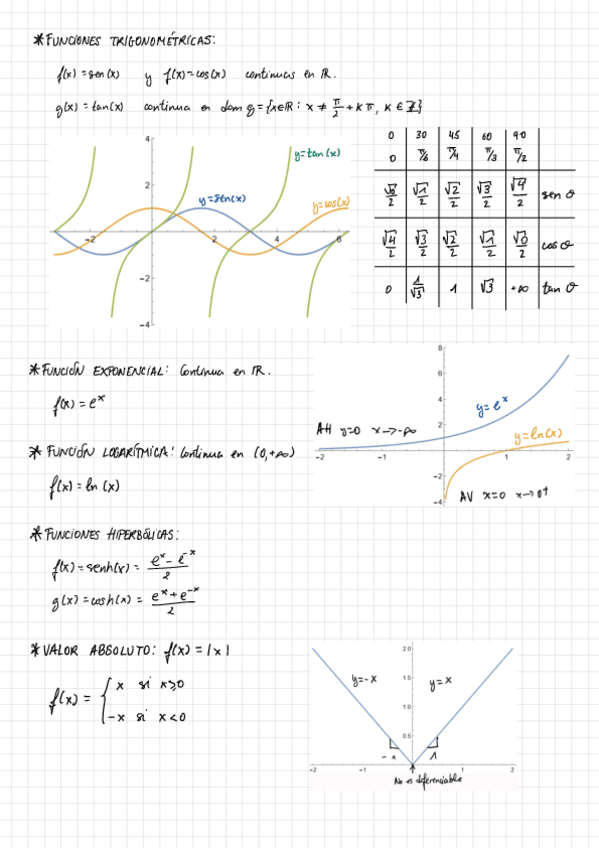 * FUNCIONES TRIGONOMÉTRICAS:
f(x) = sen(x) y f(x) = cos(x) continuas en ℝ.
g(x) = tan(x) continua en dom g = {x∈ℝ : x ≠ π/2 + kπ, k ∈ ℤ}
0 30 45 60 90
0 π/6 π/4 π/3 π/2
√0/2 √1/2 √2/2 √3/2 √4/2 sen θ
√4/2 √3/2 √2/2 √1/2 √0/2 cos θ
0 1/√3 1 √3 +∞ tan θ
4
y=tan(x)
2
y=sen(x)
y=cos(x)
-2 2 4 6
-2
-4
* FUNCIÓN EXPONENCIAL: Continua en ℝ.
f(x) = e^x
* FUNCIÓN LOGARÍTMICA: Continua en (0,+∞)
f(x) = ln(x)
8
6
4
y=e^x
2
y=ln(x)
AH y=0 x→-∞
-2 -1 1 2
-2
-4
AV x=0 x→0⁺
* FUNCIONES HIPERBÓLICAS:
f(x) = senh(x) = (e^x - e^-x)/2
g(x) = cosh(x) = (e^x + e^-x)/2
* VALOR ABSOLUTO: f(x) = |x|
f(x) = { x si x≥0
-x si x<0
2.0
y=-x y=x
1.5
1.0
0.5
-1 1
-2 -1 1 2
No es diferenciable